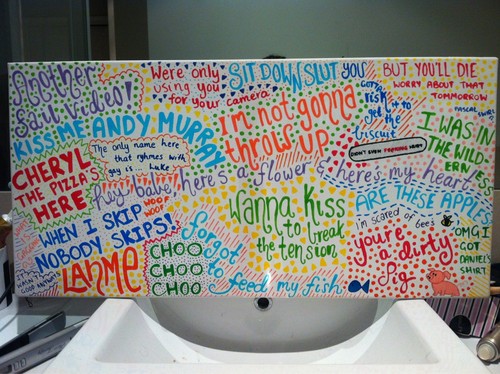 Another
Saw Vidies!
Were only
using you
for your camera
SIT DOWN SLUT
YOU
GOTTA
risk
it to
get the
biscuit
BUT YOU'LL DIE
WORRY ABOUT THAT
TOMMORROW
KISS ME ANDY MURRAY
I'm not gonna
throw up
DON'T EVEN
I WAS IN
THE WILD-
ERNESS
CHERYL
THE PIZZA'S
HERE
The only name here
that ryhmes with
gay is ... Luke
hey babe, here's a flower & here's my heart
ARE THESE APPLES
WHEN I SKIP
NOBODY SKIPS!
WOOP
WOOP
Wanna kiss
to break
the tension
i'm scared of bees
you're a dirty
Pig
OMG I
GOT
DANIEL'S
SHIRT
LAHME
CHOO
CHOO
CHOO
I forgot
to feed my fish